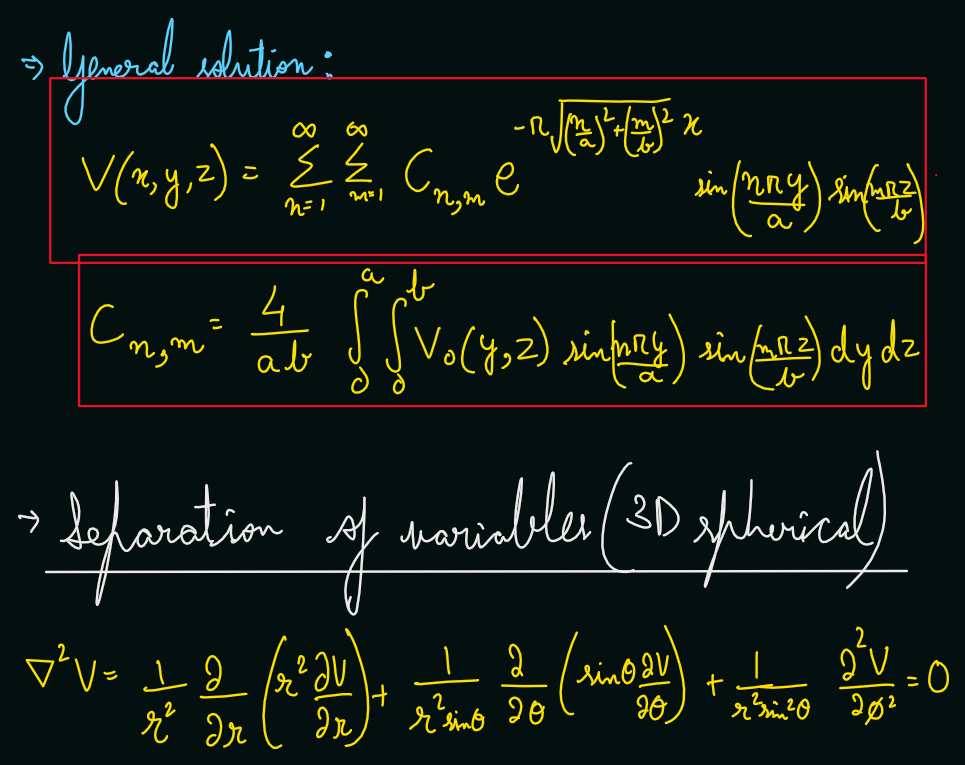 → General solution:
V(x,y,z) = ∑_{n=1}^{∞} ∑_{m=1}^{∞} C_{n,m} e^{-π√((n/a)²+(m/b)²) x} sin(nπy/a) sin(mπz/b)
C_{n,m} = 4/ab ∫_0^a ∫_0^b V₀(y,z) sin(nπy/a) sin(mπz/b) dy dz
→ Separation of variables (3D spherical)
∇²V = 1/r² ∂/∂r (r² ∂V/∂r) + 1/(r² sinθ) ∂/∂θ (sinθ ∂V/∂θ) + 1/(r² sin²θ) ∂²V/∂ø² = 0